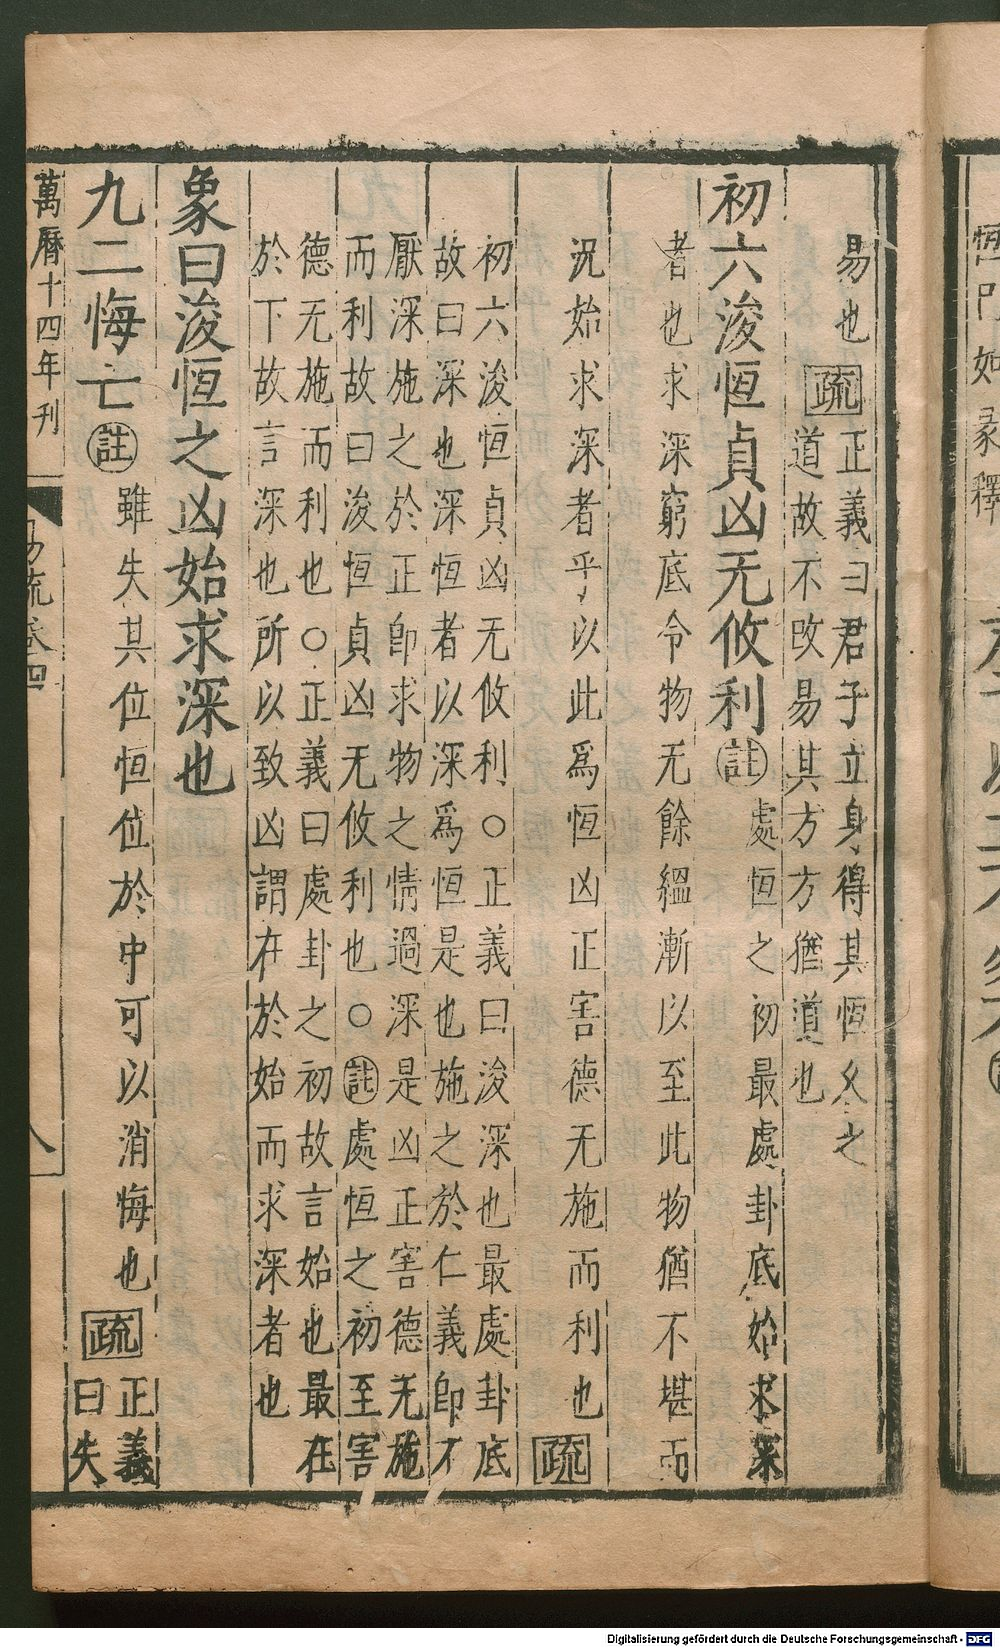 易也疏正義曰君子立身得其恒久之
道故不改易其方方猶道也
初六浚恒貞凶无攸利註處恒之初最處卦底始求深
者也求深窮底令物无餘縕漸以至此物猶不堪而
況始求深者乎以此爲恒凶正害德无施而利也疏
初六浚恒貞凶无攸利○正義曰浚深也最處卦底
故曰深也深恒者以深爲恒是也施之於仁義即不
厭深施之於正即求物之情過深是凶正害德无施
而利故曰浚恒貞凶无攸利也○註處恒之初至害
德无施而利也○正義曰處卦之初故言始也最在
於下故言深也所以致凶謂在於始而求深者也
象曰浚恒之凶始求深也
九二悔亡註雖失其位恒位於中可以消悔也疏正義
曰失
萬曆十四年刊 易疏卷四 八
Digitalisierung gefördert durch die Deutsche Forschungsgemeinschaft - DFG